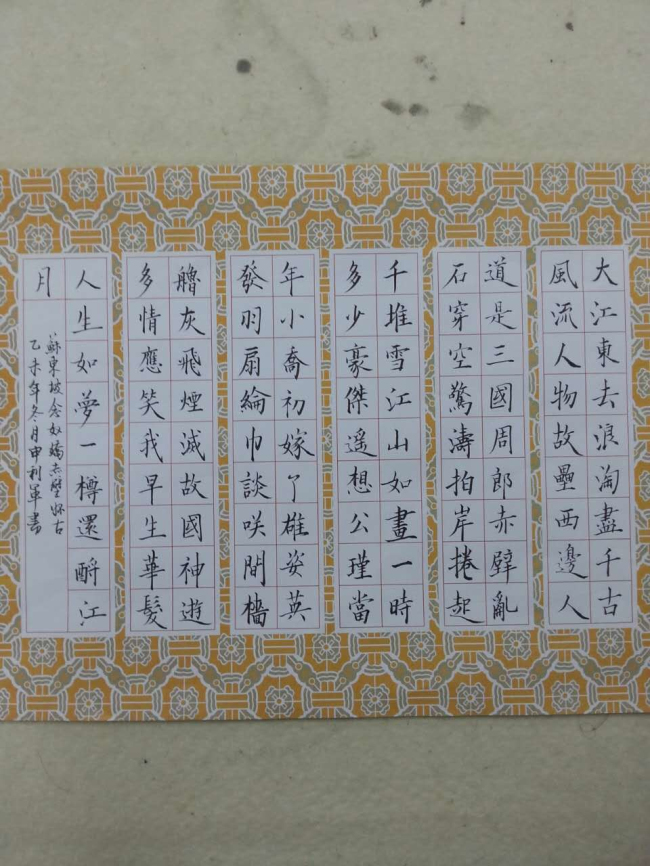 大江東去浪淘盡千古
風流人物故壘西邊人
道是三國周郎赤壁亂
石穿空驚濤拍岸捲起
千堆雪江山如畫一時
多少豪傑遥想公瑾當
年小喬初嫁了雄姿英
發羽扇綸巾談咲間檣
艪灰飛煙滅故國神遊
多情應笑我早生華髮
人生如夢一樽還酹江
月
蘇東坡念奴嬌赤壁怀古
乙未年冬月申利軍書